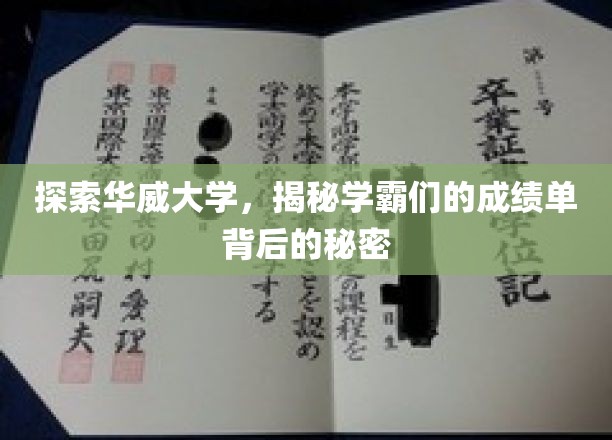 探索华威大学，揭秘学霸们的成绩单
背后的秘密
第 号
卒業証 学位記
本学商学部 定の課程を
修めて本学 ことを認め
学士(商学)の学 する
平成
東京国際大学 村愛理
東京国際大 長田尻嗣夫